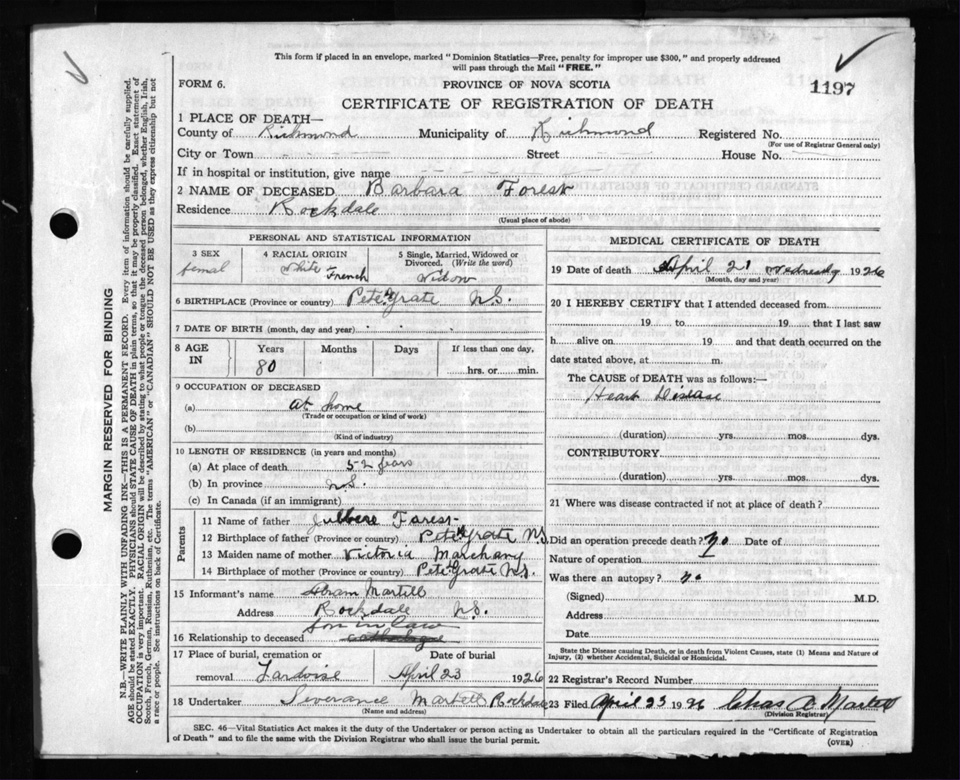 This form if placed in an envelope, marked "Dominion Statistics—Free, penalty for improper use $300," and properly addressed
will pass through the Mail "FREE."
FORM 6.
PROVINCE OF NOVA SCOTIA
1197
CERTIFICATE OF REGISTRATION OF DEATH
1 PLACE OF DEATH—
County of Richmond Municipality of Richmond Registered No.
(For use of Registrar General only)
City or Town Street House No.
If in hospital or institution, give name
2 NAME OF DECEASED Barbara Forest
Residence Rockdale
(Usual place of abode)
PERSONAL AND STATISTICAL INFORMATION
3 SEX 4 RACIAL ORIGIN 5 Single, Married, Widowed or Divorced. (Write the word)
femal White French Widow
6 BIRTHPLACE (Province or country) Petet Grate N.S.
7 DATE OF BIRTH (month, day and year)
8 AGE IN Years Months Days If less than one day,
80 hrs. or min.
9 OCCUPATION OF DECEASED
(a) at home
(Trade or occupation or kind of work)
(b)
(Kind of industry)
10 LENGTH OF RESIDENCE (in years and months)
(a) At place of death 52 years
(b) In province N.S.
(c) In Canada (if an immigrant)
Parents
11 Name of father Forest
12 Birthplace of father (Province or country) Petet Grate N.S.
13 Maiden name of mother Victoria Marchany
14 Birthplace of mother (Province or country) Petet Grate N.S.
15 Informant's name Martell
Address Rockdale N.S.
son in law
16 Relationship to deceased
17 Place of burial, cremation or Date of burial
removal Lardoise April 23 1926
18 Undertaker Severance Martell Rockdale
(Name and address)
MEDICAL CERTIFICATE OF DEATH
19 Date of death April 21 Wednesday 1926
(Month, day and year)
20 I HEREBY CERTIFY that I attended deceased from
19 to 19 that I last saw
h alive on 19 and that death occurred on the
date stated above, at m.
The CAUSE of DEATH was as follows:—
Heart Disease
(duration) yrs. mos. dys.
CONTRIBUTORY
(duration) yrs. mos. dys.
21 Where was disease contracted if not at place of death?
Did an operation precede death? no Date of
Nature of operation
Was there an autopsy? no
(Signed) M.D.
Address
Date
State the Disease causing Death, or in death from Violent Causes, state (1) Means and Nature of
Injury, (2) whether Accidental, Suicidal or Homicidal.
22 Registrar's Record Number
23 Filed April 23 1926 Chas A. Martell
(Division Registrar)
SEC. 46—Vital Statistics Act makes it the duty of the Undertaker or person acting as Undertaker to obtain all the particulars required in the "Certificate of Registration
of Death" and to file the same with the Division Registrar who shall issue the burial permit.
(OVER)
MARGIN RESERVED FOR BINDING
N.B.—WRITE PLAINLY WITH UNFADING INK—THIS IS A PERMANENT RECORD. Every item of information should be carefully supplied.
AGE should be stated EXACTLY. PHYSICIANS should STATE CAUSE OF DEATH in plain terms, so that it may be properly classified. Exact statement of
OCCUPATION is very important. RACIAL ORIGIN will be described by stating to what people or tongue the deceased person belonged, whether English, Irish,
Scotch, French, German, Russian, Ruthenian, etc. The terms "AMERICAN" or "CANADIAN" SHOULD NOT BE USED as they express citizenship but not
a race or people. See instructions on back of Certificate.